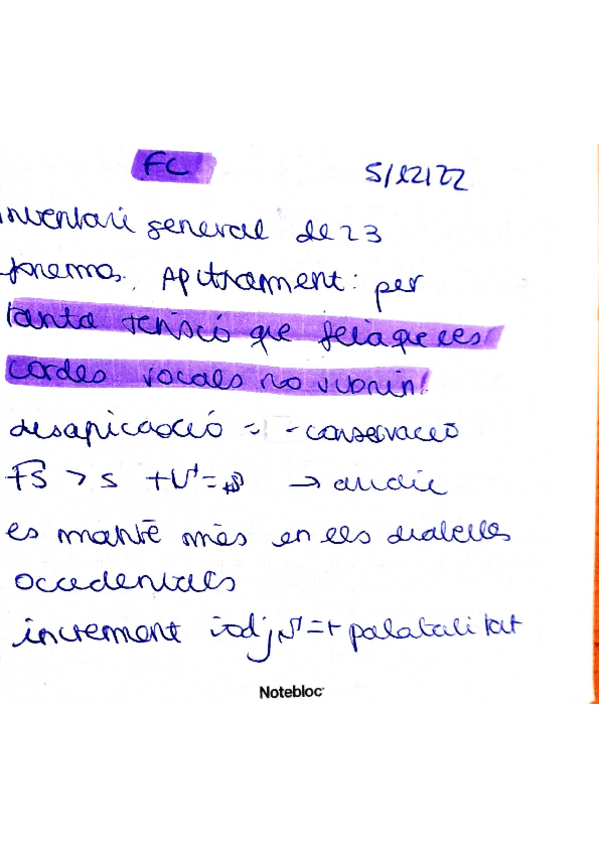 FC 5/12/22
Inventari general de 23
fonemes. Apitxament: per
tanta tensió que feia que les
cordes vocals no vibrin!
desapicació = - conservació
s
es manté més en els dialectes
occidentals
increment iod = + palatalitat
Notebloc